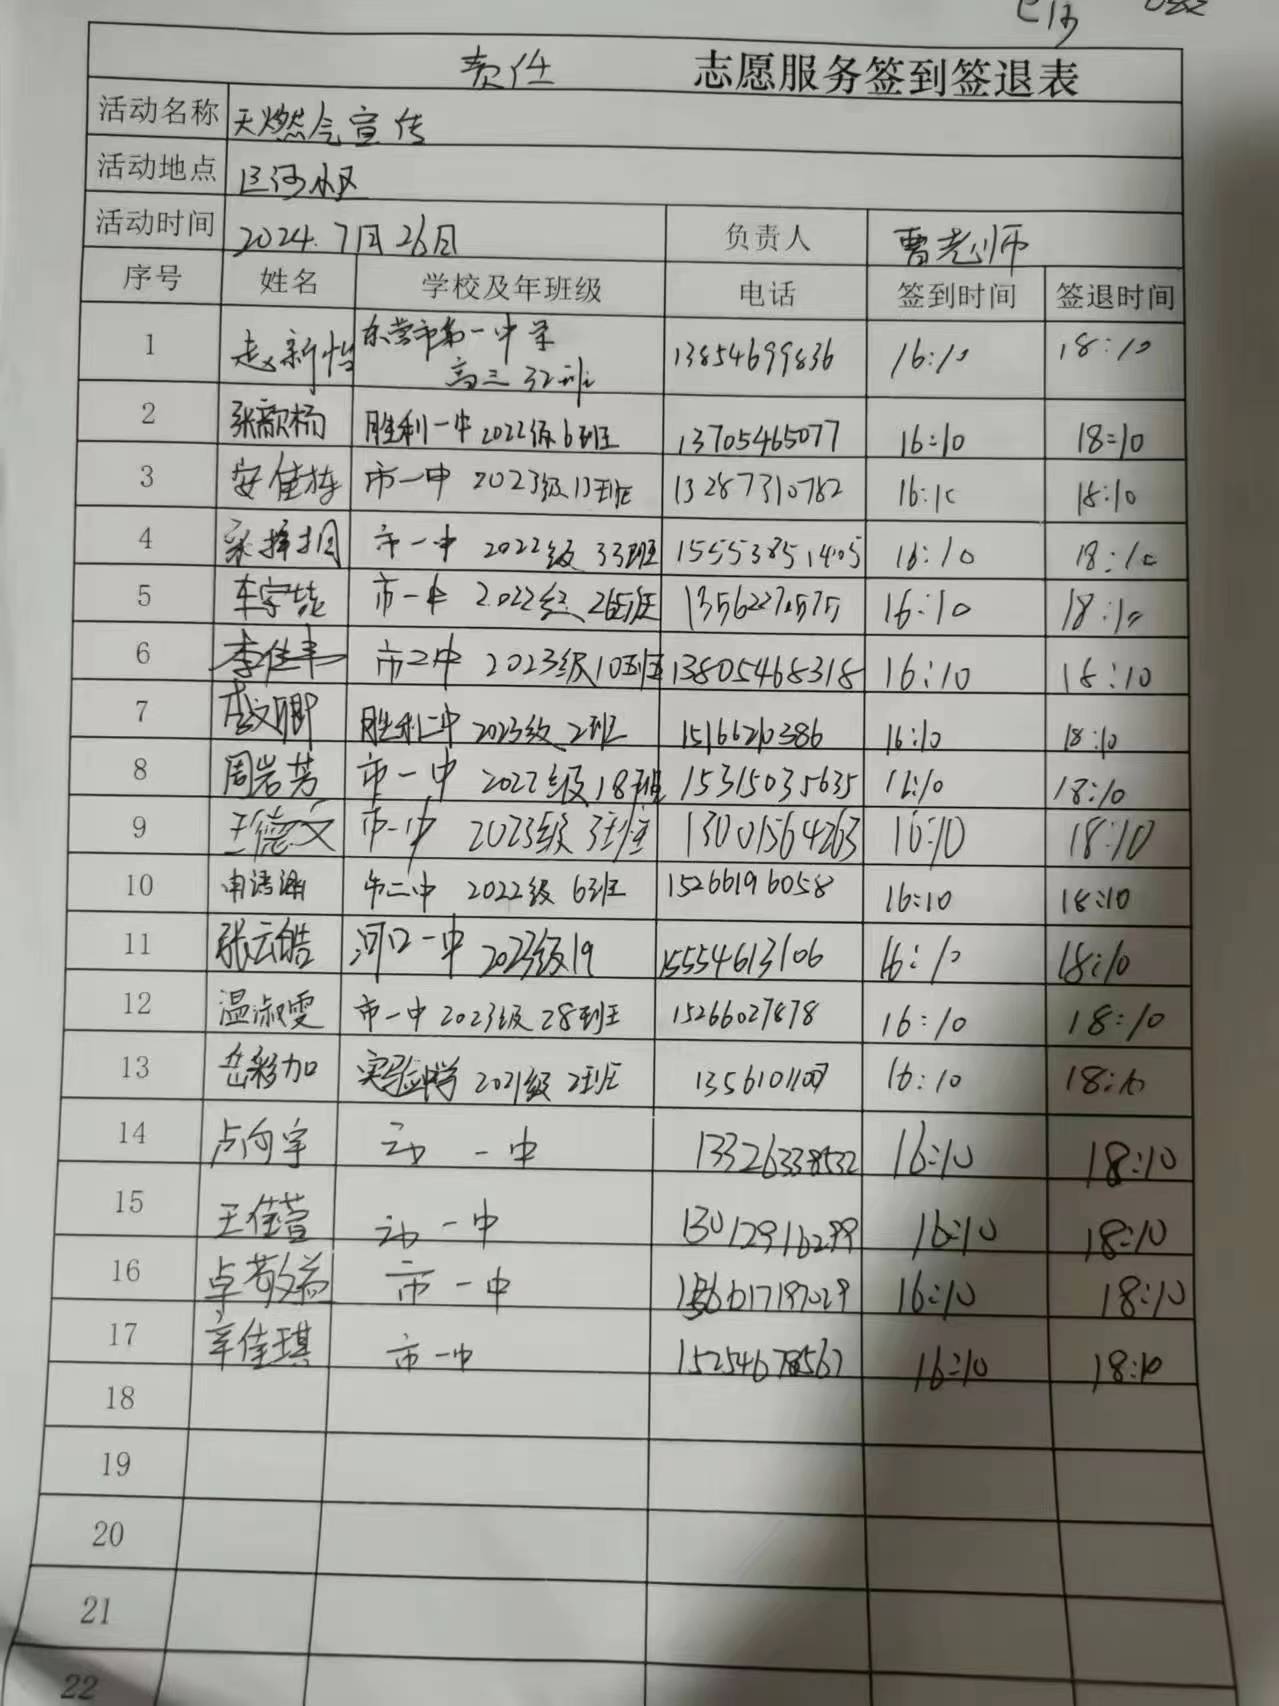 责任 志愿服务签到签退表
活动名称 天燃气宣传
活动地点 巨河小区
活动时间 2024.7月26日 负责人 曹老师
序号 姓名 学校及年班级 电话 签到时间 签退时间
1 赵新怡 东营市第一中学 13854699836 16:10 18:10
高三 32班
2 张歆杨 胜利一中 2022级6班 13705465077 16:10 18:10
3 安佳栋 市一中 2023级13班 13287310782 16:10 18:10
4 市一中 2022级 33班 15553851405 16:10 18:10
5 市一中 2022级 26班 13562272575 16:10 18:10
6 李佳丰 市二中 2023级10班 13805468318 16:10 18:10
7 李文卿 胜利二中 2023级 2班 15166210386 16:10 18:10
8 周岩芳 市一中 2022级18班 15315035635 16:10 18:10
9 王德文 市一中 2023级 3班 13001564263 16:10 18:10
10 市二中 2022级 6班 15266196058 16:10 18:10
11 张云皓 河口一中 2023级19 15554613106 16:10 18:10
12 温淑雯 市一中 2023级 28班 15266027878 16:10 18:10
13 岳彩加 实验中学 2021级 2班 16:10 18:10
14 卢向宇 市一中 13326338532 16:10 18:10
15 王佳萱 市一中 13012916299 16:10 18:10
16 卓敬益 市一中 16:10 18:10
17 辛佳琪 市一中 15254678567 16:10 18:10
18
19
20
21
22